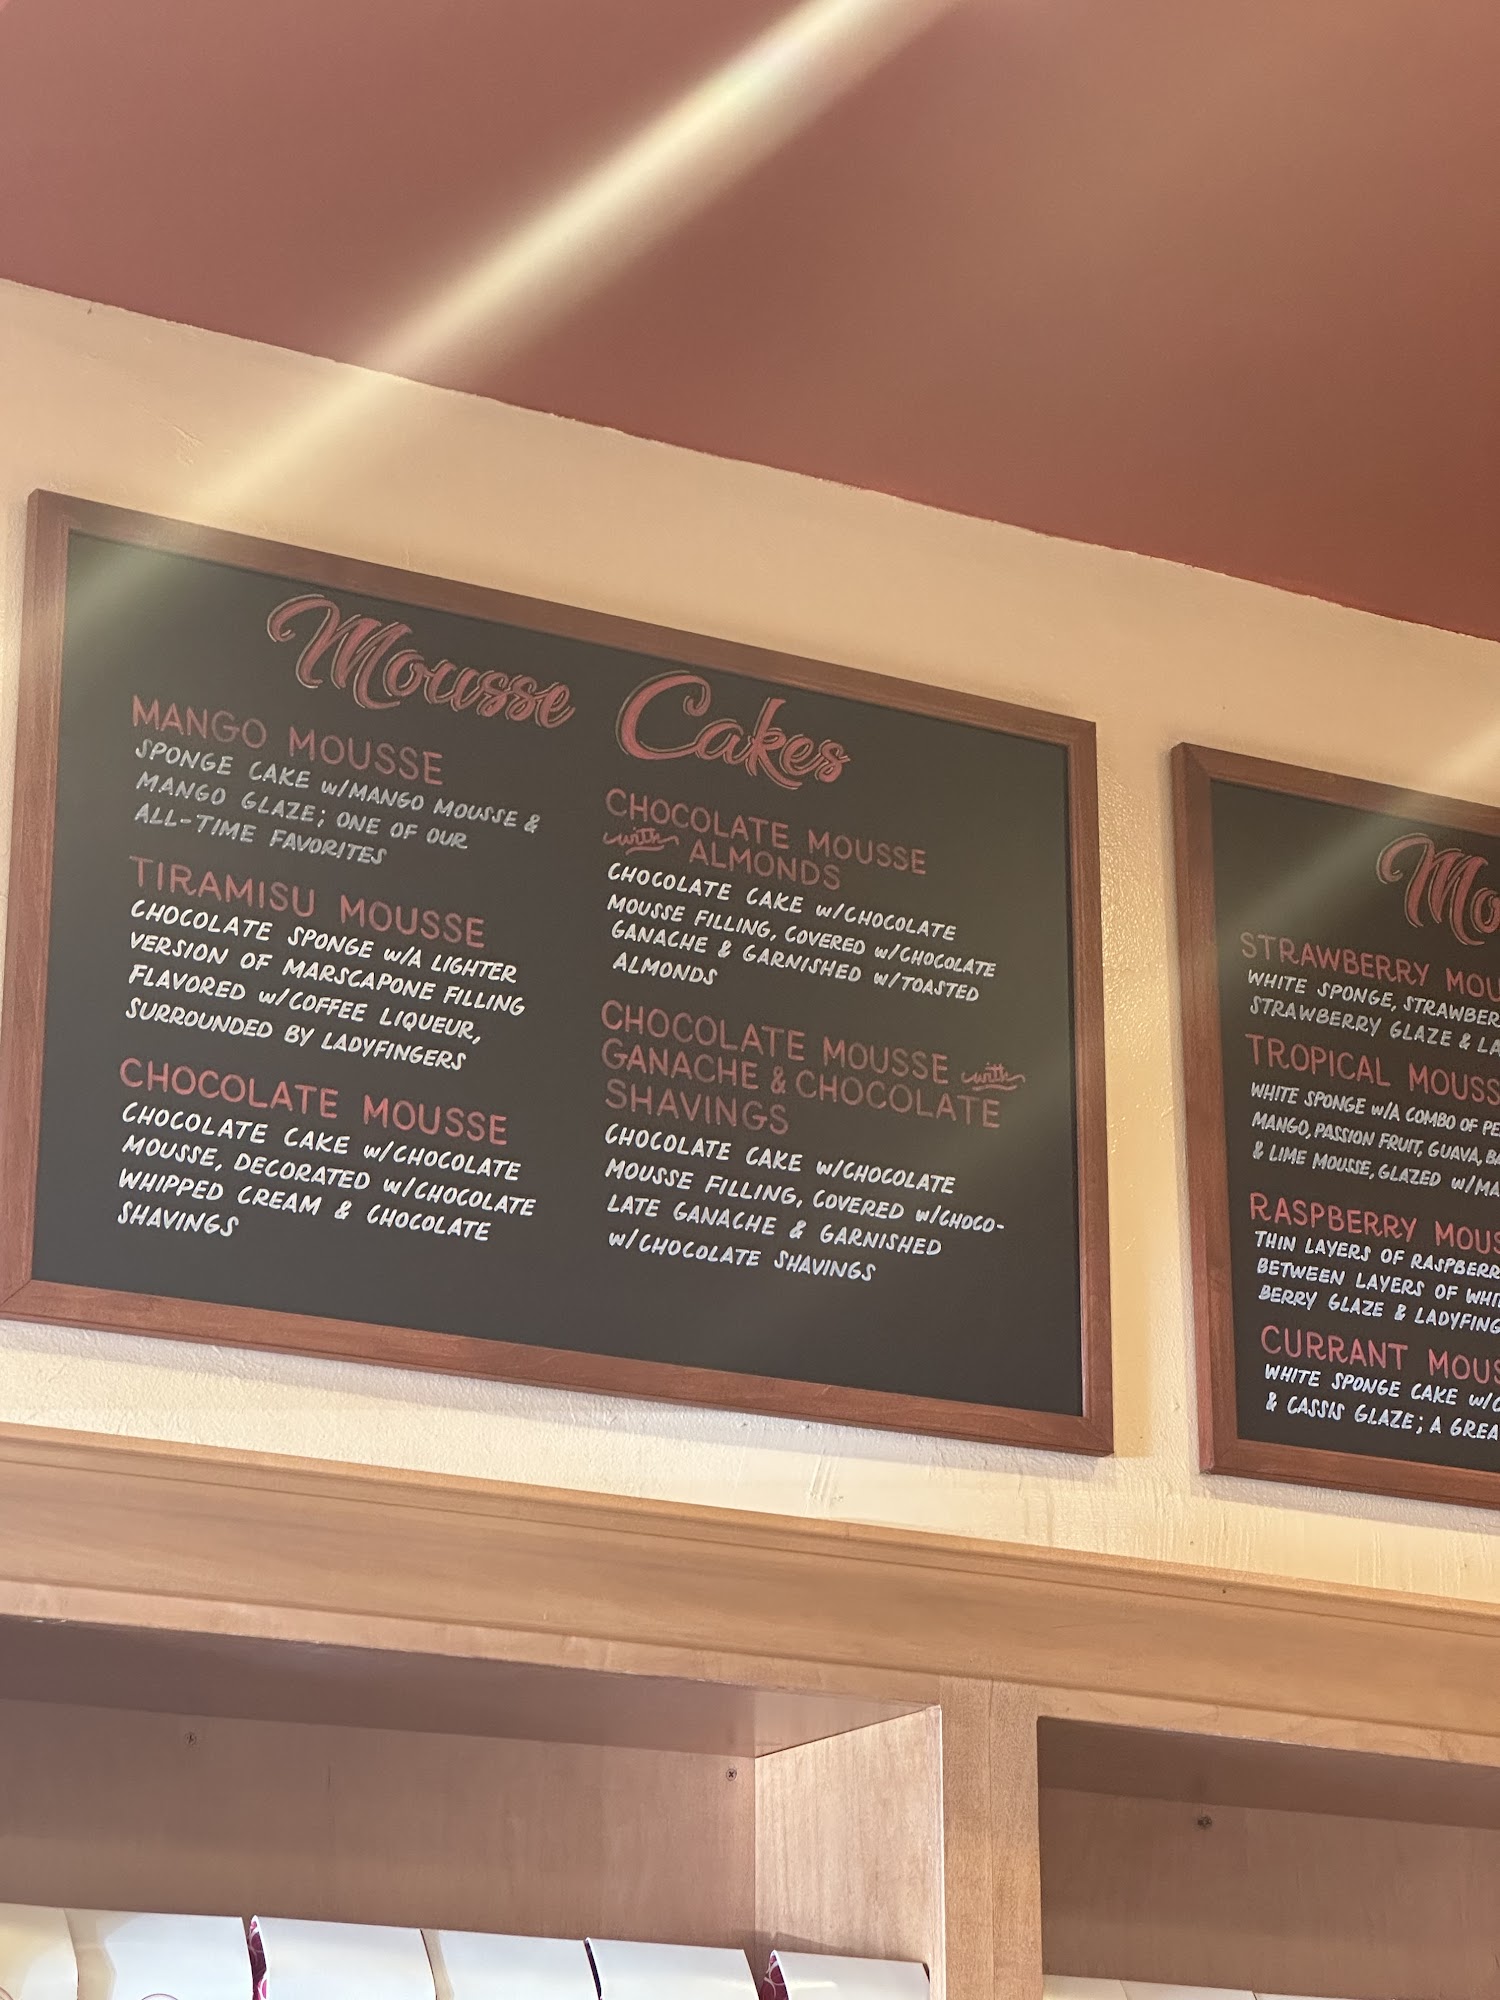 Mousse Cakes
MANGO MOUSSE
SPONGE CAKE w/MANGO MOUSSE &
MANGO GLAZE; ONE OF OUR
ALL-TIME FAVORITES
TIRAMISU MOUSSE
CHOCOLATE SPONGE w/A LIGHTER
VERSION OF MARSCAPONE FILLING
FLAVORED w/COFFEE LIQUEUR,
SURROUNDED BY LADYFINGERS
CHOCOLATE MOUSSE
CHOCOLATE CAKE w/CHOCOLATE
MOUSSE, DECORATED w/CHOCOLATE
WHIPPED CREAM & CHOCOLATE
SHAVINGS
CHOCOLATE MOUSSE
with ALMONDS
CHOCOLATE CAKE w/CHOCOLATE
MOUSSE FILLING, COVERED w/CHOCOLATE
GANACHE & GARNISHED w/TOASTED
ALMONDS
CHOCOLATE MOUSSE with
GANACHE & CHOCOLATE
SHAVINGS
CHOCOLATE CAKE w/CHOCOLATE
MOUSSE FILLING, COVERED w/CHOCO-
LATE GANACHE & GARNISHED
w/CHOCOLATE SHAVINGS
Mo
STRAWBERRY MOU
WHITE SPONGE, STRAWBER
STRAWBERRY GLAZE & LA
TROPICAL MOUSS
WHITE SPONGE w/A COMBO OF PE
MANGO, PASSION FRUIT, GUAVA, BA
& LIME MOUSSE, GLAZED w/MA
RASPBERRY MOUS
THIN LAYERS OF RASPBERR
BETWEEN LAYERS OF WHIT
BERRY GLAZE & LADYFING
CURRANT MOUS
WHITE SPONGE CAKE w/C
& CASSIS GLAZE; A GREA